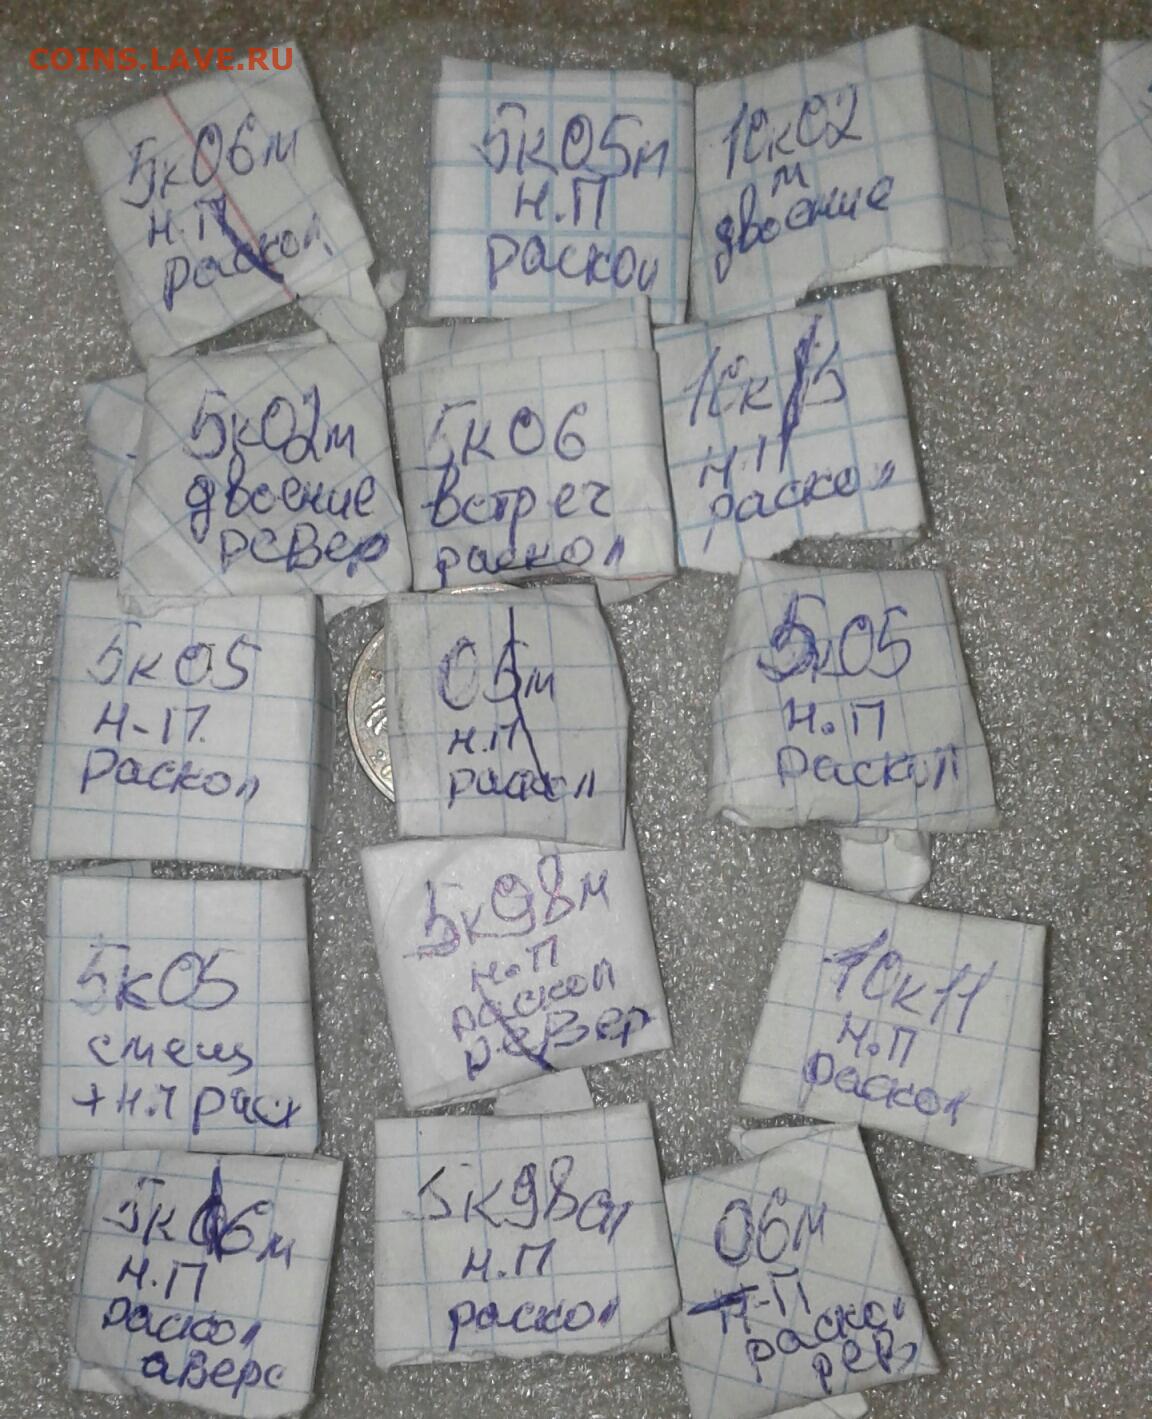 COINS.LAVE.RU
5к06м
н.П
раскол
5к05м
н.П
раскол
10к02
м
двоение
5к02м
двоение
ревер
5к06
встреч
раскол
10к13
н.П
раскол
5к05
н-П.
раскол
05м
н.П
раскол
5к05
н.П
раскол
5к05
смещ
+н.ч раск
5к98м
н.П
раскол
ревер
10к11
н.П
раскол
5к06м
н.П
раскол
аверс
5к98сп
н.П
раскол
06м
н-П
раскол
рев